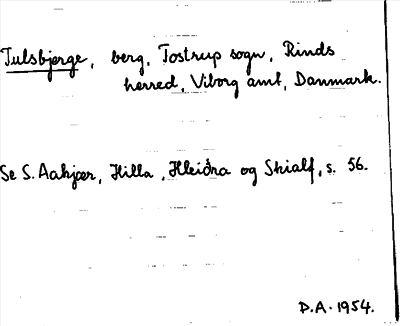 Tulsbjerge, berg, Tostrup sogn, Rinds
herred, Viborg amt, Danmark.
Se S. Aakjær, Hilla, Hleiðra og Skialf, s. 56.
D.A. 1954.